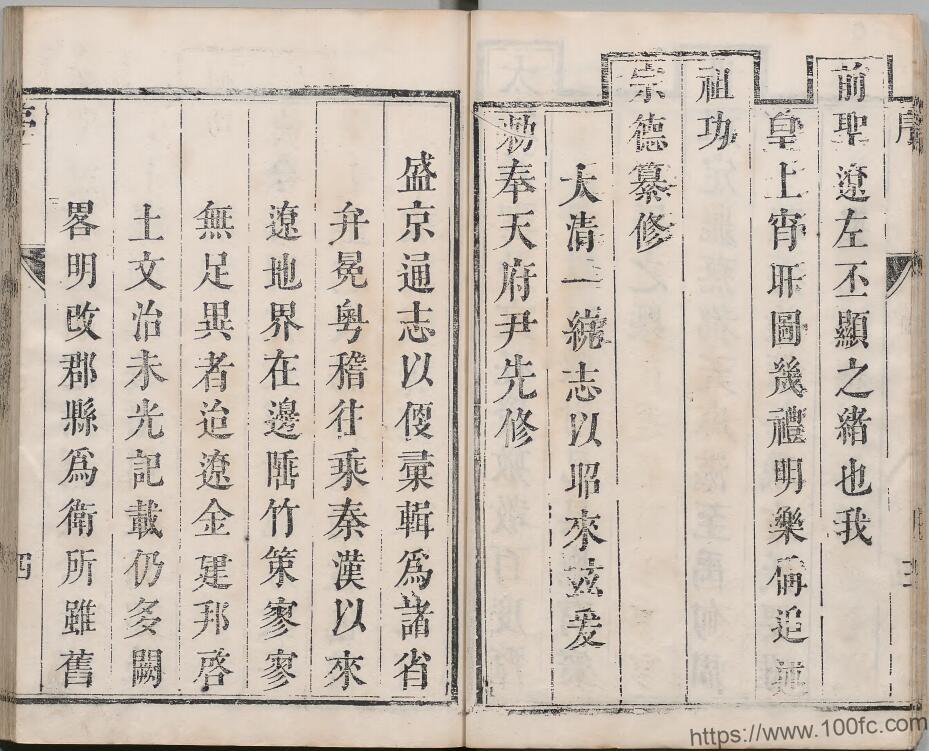 前聖遼左丕顯之緒也我
皇上宵旰圖幾禮明樂備追
祖功
宗德纂修
大清一統志以昭來茲爰
勅奉天府尹先修
盛京通志以便彙輯爲諸省
弁冕粵稽往乘秦漢以來
遼地界在邊陲竹策寥寥
無足異者迨遼金建邦啓
土文治未光記載仍多闕
畧明改郡縣爲衛所雖舊
四
https://www.100fc.com